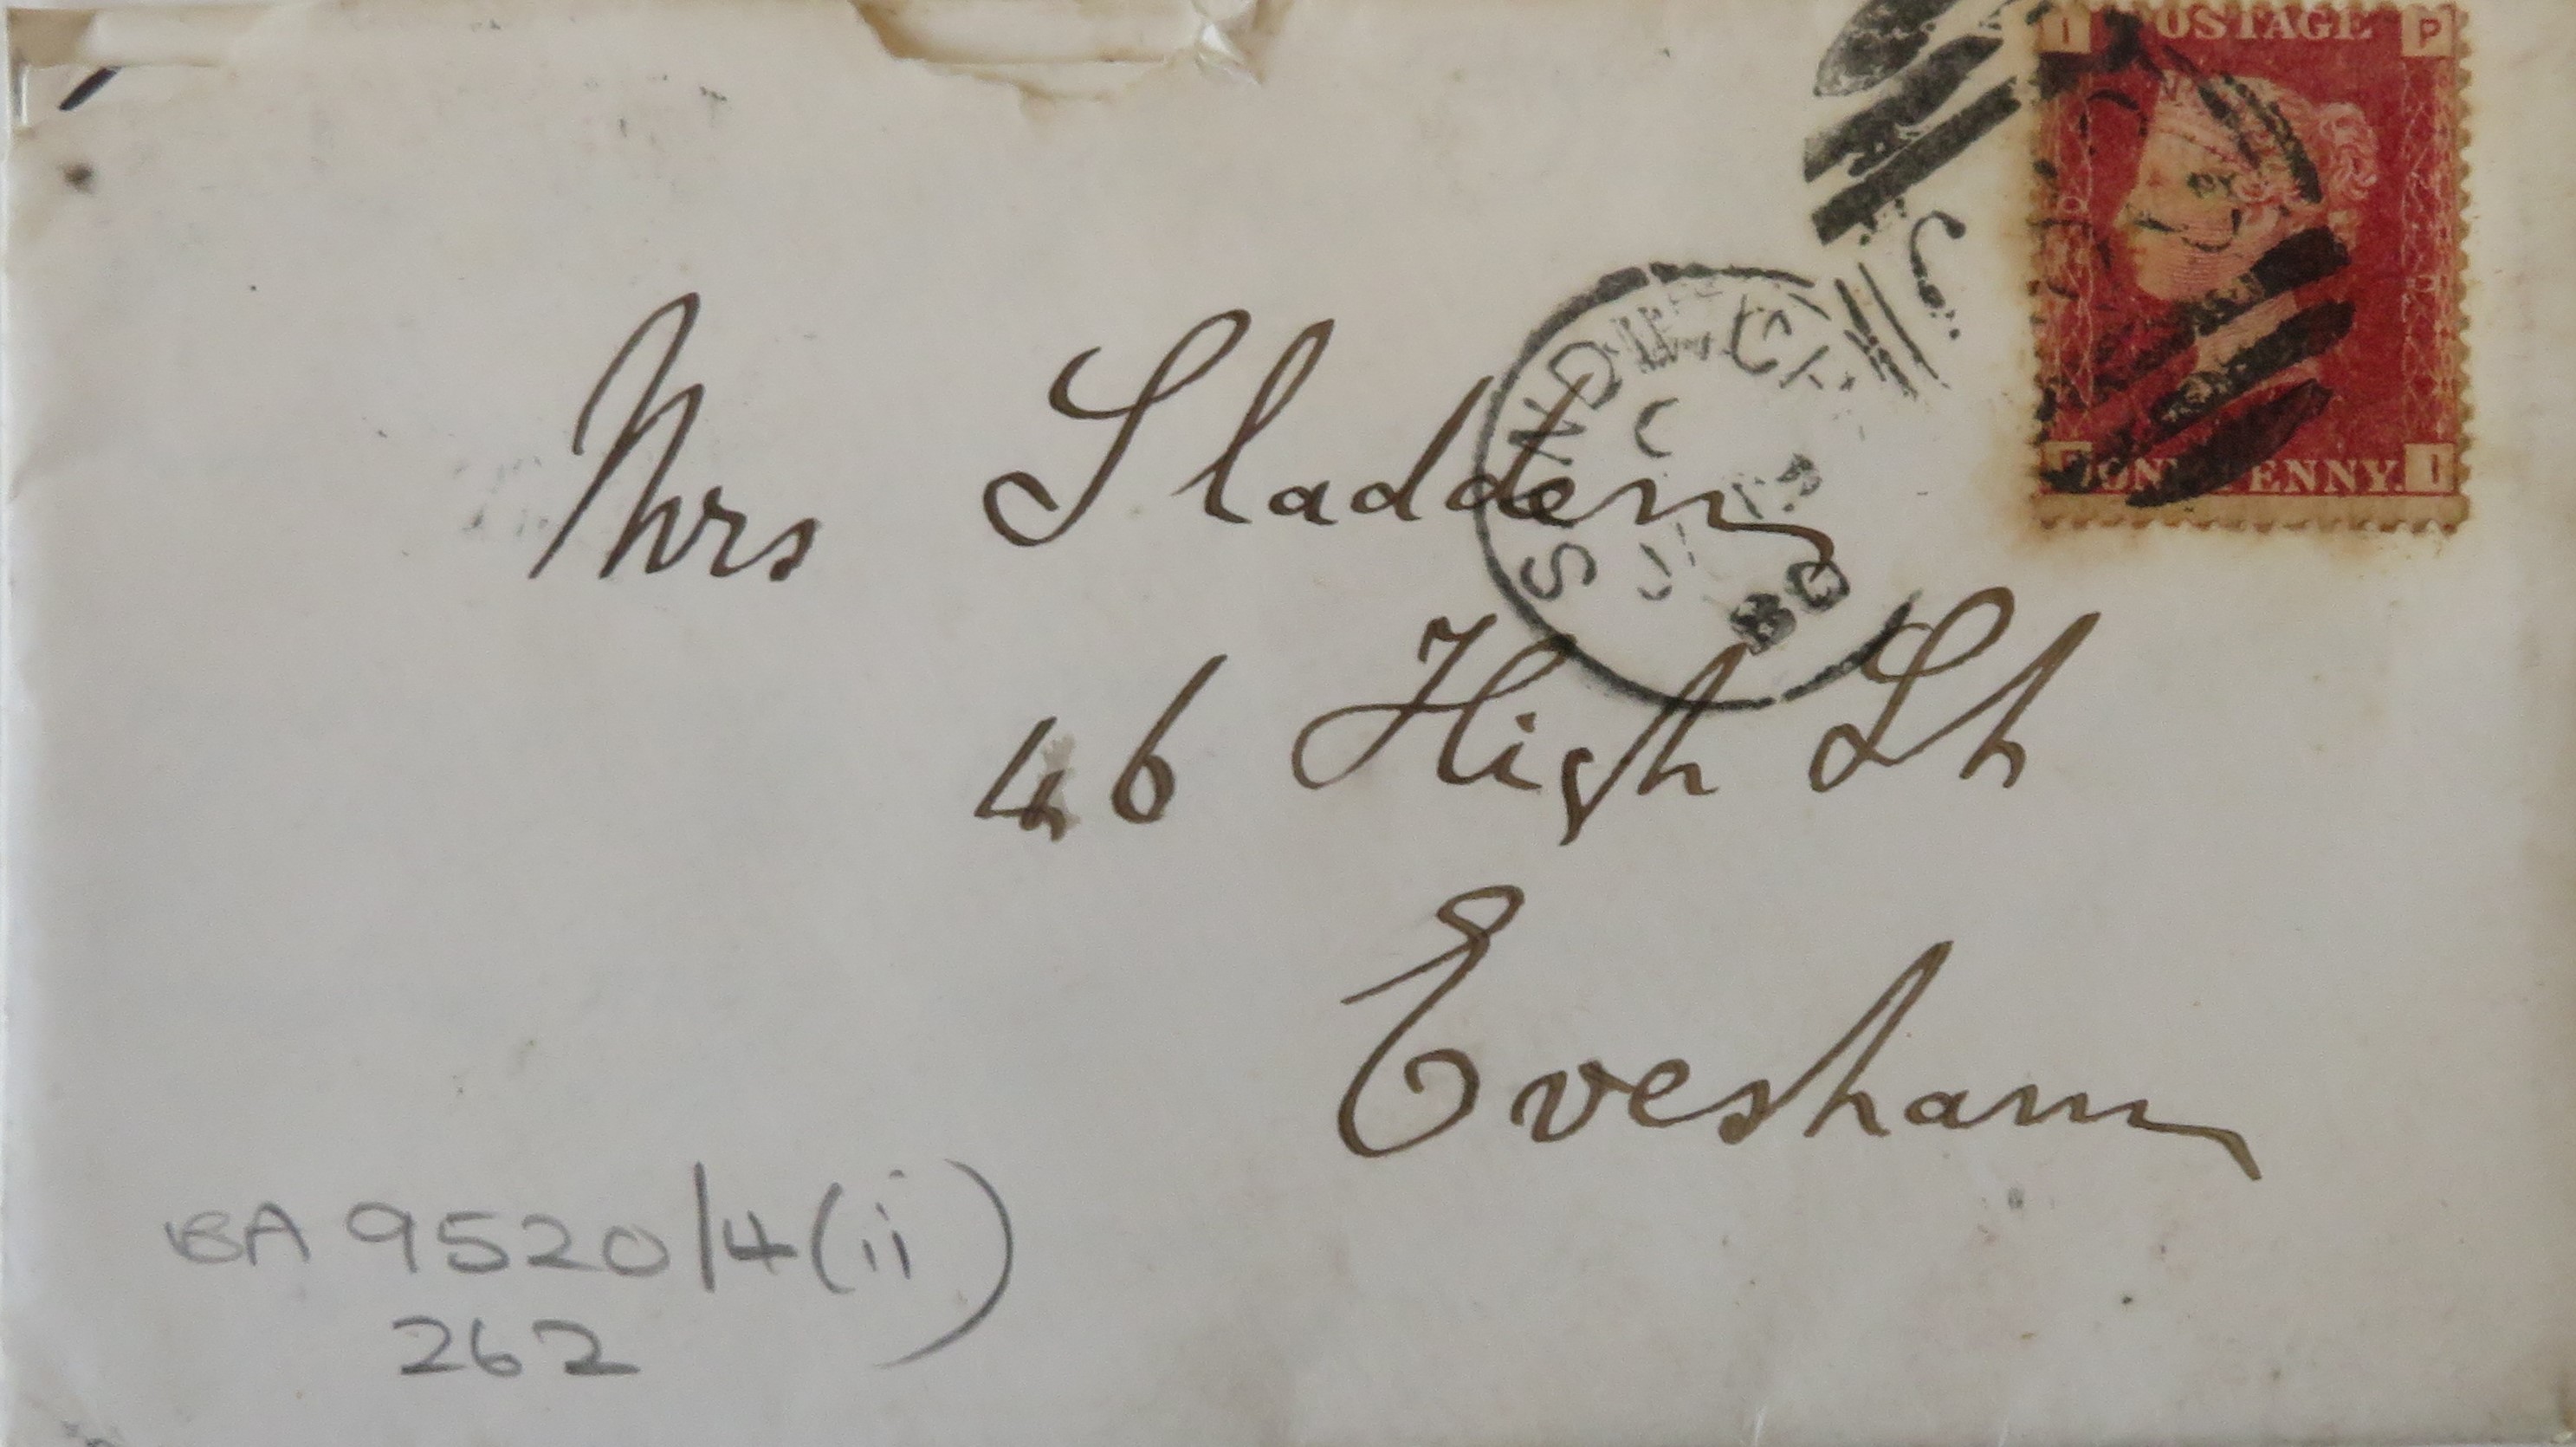 POSTAGE
I P
ONE PENNY.
P I
80
Mrs Sladden
46 High St
Evesham
BA 9520/4(ii)
262